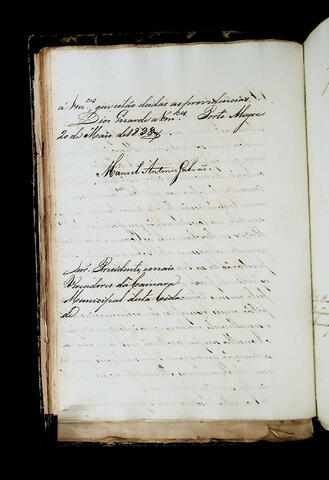 á Vm.ces que estão dadas as providencias.
Dios Guarde a Vm.ces Porto Alegre
20 de Maio de 1833
Manoel Antonio Galvão
Snr. Presidente, e mais
Vereadores da Camara
Municipal desta Cida-
de